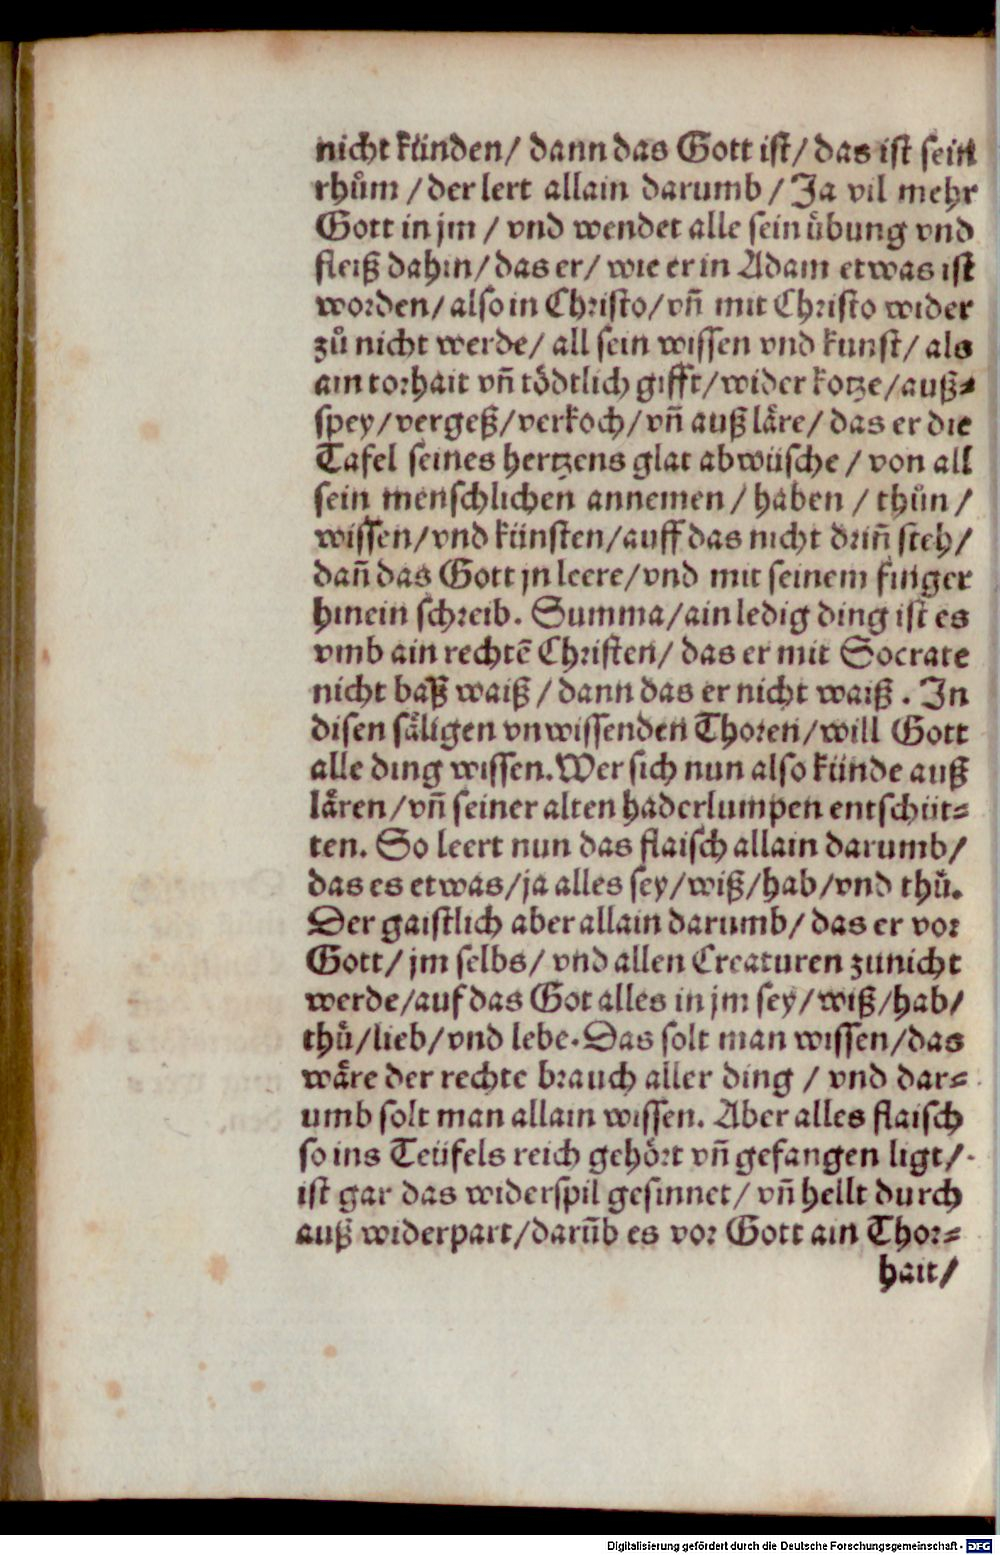 nicht künden/ dann das Gott ist/ das ist sein
rhům / der lert allain darumb / Ja vil mehr
Gott in jm / vnd wendet alle sein übung vnd
fleiß dahin/ das er/ wie er in Adam etwas ist
worden/ also in Christo/ vñ mit Christo wider
zů nicht werde/ all sein wissen vnd kunst/ als
ain torhait vñ tödtlich gifft/ wider kotze/ auß⸗
spey/ vergeß/ verkoch/ vñ auß läre/ das er die
Tafel seines hertzens glat abwüsche / von all
sein menschlichen annemen / haben / thůn /
wissen/ vnd künsten/ auff das nicht driñ steh/
dañ das Gott jn leere/ vnd mit seinem finger
hinein schreib. Summa/ ain ledig ding ist es
vmb ain rechtē Christen/ das er mit Socrate
nicht baß waiß / dann das er nicht waiß. In
disen säligen vnwissenden Thoren/ will Gott
alle ding wissen. Wer sich nun also künde auß
lären/ vñ seiner alten haderlumpen entschüt⸗
ten. So leert nun das flaisch allain darumb/
das es etwas/ ja alles sey/ wiß/ hab/ vnd thů.
Der gaistlich aber allain darumb/ das er vor
Gott/ jm selbs/ vnd allen Creaturen zunicht
werde/ auf das Got alles in jm sey/ wiß/ hab/
thů/ lieb/ vnd lebe. Das solt man wissen/ das
wäre der rechte brauch aller ding / vnd dar⸗
umb solt man allain wissen. Aber alles flaisch
so ins Teüfels reich gehört vñ gefangen ligt/
ist gar das widerspil gesinnet/ vñ hellt durch
auß widerpart/ darūb es vor Gott ain Thor⸗
hait/
Digitalisierung gefördert durch die Deutsche Forschungsgemeinschaft - DFG